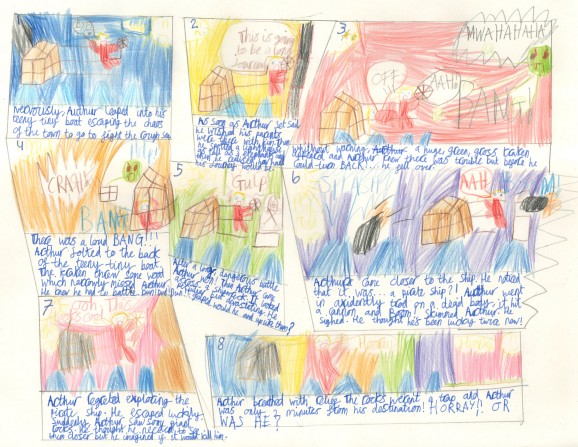 1
Nervously, Arthur leaped into his
teeny-tiny boat escaping the chaos
of the town to go to fight the rough sea
2
This is going
to be a long
journey
As soon as Arthur set sail
he wished his parents
were there with him. Then
he spotted a
as tall as a
then he realised how
his journey would be
3
MWAHAHAHA!
OFF
AAHH
BANG
Without warning, Arthur a huge, green, gross kraken
appeared and Arthur knew there was trouble but before he
could turn BACK... he fell over.
4
CRASH
BANG
There was a loud BANG!!!
Arthur jolted to the back
of the teeny-tiny boat.
The kraken threw some wood
which narrowly missed Arthur.
He knew he had to battle.
5
Gulp
After a long, dangerous battle
Arthur won! Then Arthur
he looked
6
SPLASH
AAH
Arthur came closer to the ship. He noticed
that it was... a pirate ship?! Arthur went
in accidently trod on a dead body it hit
a cannon, and BOOM! skimmed Arthur. He
sighed. He thought he's been lucky twice now!
7
Ooh
Arthur regreted exploring the
pirate ship. He escaped luckily.
Suddenly, Arthur saw some giant
rocks. He thought he needed to
them closer but he imagined if it would kill him.
8
Arthur breathed with relief. The rocks werent a trap and Arthur
was only 2 minutes from his destination! HORRAY!! OR
WAS HE?